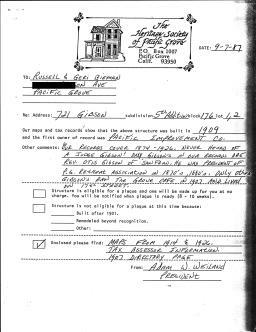 The
Heritage Society
of Pacific Grove
P.O. Box 1007
Pacific Grove
Calif. 93950
DATE: 9-7-87
TO: RUSSELL & GERI
AVE
PACIFIC GROVE
Re: Address: 721 GIBSON subdivision 5th Addition block 176 lot 1,2
Our maps and tax records show that the above structure was built in 1909
and the first owner of record was PACIFIC IMPROVEMENT CO.
Other comments: P.G. RECORDS COVER 1874-1926. NEVER HEARD OF
A JUDGE GIBSON! ONLY GIBSON'S IN OUR RECORDS ARE
REV. OTIS GIBSON OF SAN FRAN. HE WAS PRESIDENT OF
P.G. RETREAT ASSOCIATION IN 1870'S, 1880'S. ONLY OTHER
GIBSON'S RAN THE GROVE CAFE IN 1907 AND LIVED
ON 19th STREET.
Structure is eligible for a plaque and one will be made up for you at no
charge. You will be notified when plaque is ready (8 - 10 weeks).
Structure is not eligible for a plaque at this time because:
Built after 1901.
Remodeled beyond recognition.
Other:
Enclosed please find: MAPS FROM 1914 & 1926.
TAX ASSESSOR INFORMATION
1907 DIRECTORY PAGE
From: ADAM W. WEILAND
PRESIDENT